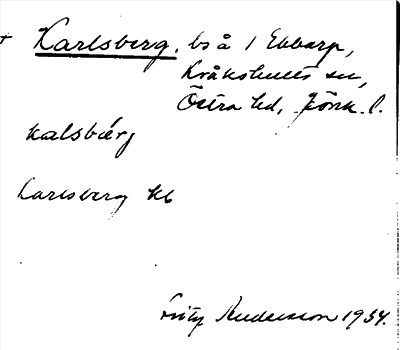 Karlsberg, bs å 1 Ebbarp,
Kråkshults sn,
Östra hd, Jönk. l.
kalsbærj
Karlsberg kb
Fritz Andersson 1934.